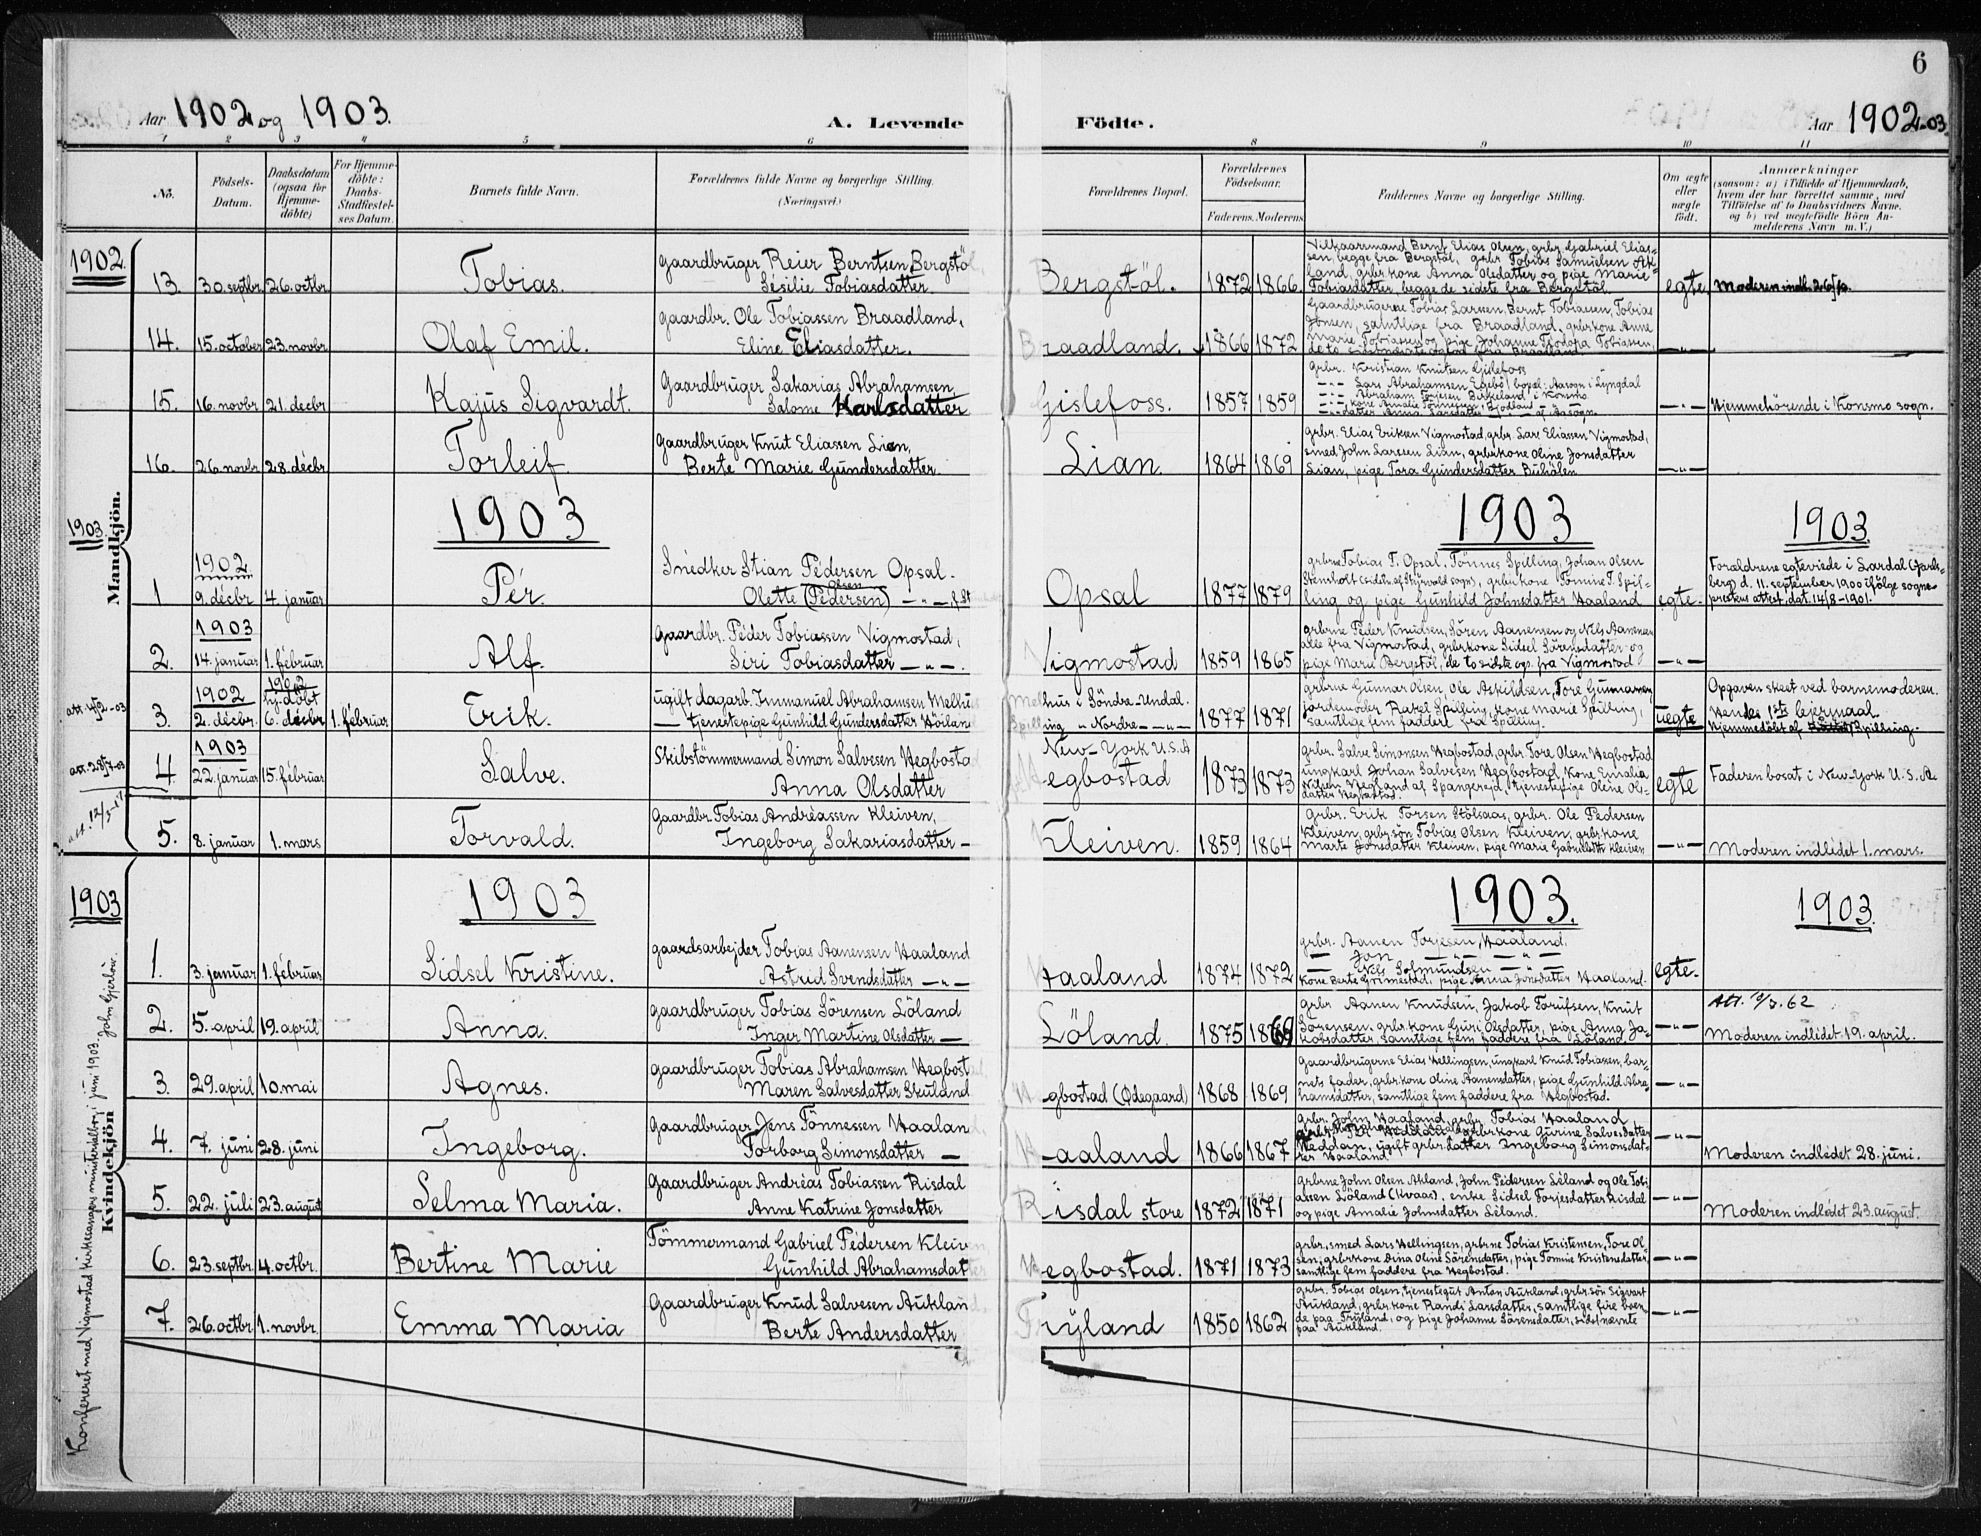 6
Aar 1902 og 1903. A. Levende Födte. Aar 1902-03.
1 2 3 4 5 6 8 9 10 11
No. Födsels-Datum. Daabsdatum (ogsaa for Hjemme-döbte) For Hjemme-döbte: Daabs-Stadfæstel-ses Datum. Barnets fulde Navn. Forældrenes fulde Navne og borgerlige Stilling. (Næringsvei.) Forældrenes Bopæl. Forældrenes Födselsaar. Faderens. Moderens Faddernes Navne og borgerlige Stilling. Om ægte eller uægte födt. Anmærkninger
(saasom: a) i Tilfælde af Hjemmedaab, hvem der har forrettet samme, med Tilföielse af to Daabsvidners Navne. og b) ved uægtefödte Börn An-melderens Navn m.V.)
1902
13. 30. septbr. 26. octbr. Tobias. Gaardbruger Reier Berntsen Bergstöl, Sesilie Tobiasdatter Bergstöl. 1872 1866
Vilkaarsmand Bernt Elias Olsen, grbr. Gabriel Elias-
sen, begge fra Bergstöl, grbr. Tobias Samuelsen Ak
land, grbr. kone Anna Olsdatter og pige Marie
Tobiasdatter, begge de sidste fra Bergstöl.
egte. Moderen indl. 26/10.
14. 15. october 23. novbr Olaf Emil. Gaardbr. Ole Tobiassen Braadland, Eline Eliasdatter. Braadland. 1866 1872
Gaardbrugerne Tobias Larssen, Bernt Tobiassen, Tobias
Jonsen, samtlige fra Braadland, grbr. kone Anne
Marie Tobiassen og pige Johanne Teodora Tobiassen,
15. 16. novbr 21. decbr Kajus Sigvardt. Gaardbruger Sakarias Abrahamsen Salome Karlsdatter Gislefoss. 1857 1859
Grbr. Kristian Knutsen Gislefoss
Lars Abrahamsen Egebö / bopæl: Aasogn i Lyngdal
Abraham Torjesen Birkeland i Konsmo
kone Amalie Tönnesen Bjodland
datter Anna Larsdatter af Aasogn
Hjemmehörende i Konsmo sogn.
16. 26. novbr 28. décbr Torleif Gaardbruger Knut Eliassen Lian, Berte Marie Gundersdatter. Lian. 1864 1869
Grbr. Elias Eriksen Vigmostad, grbr. Lars Eliassen Vigmostad,
smed John Larssen Lian, grbr. kone Oline Jonsdatter
Lian, pige Tora Gundersdatter Buhölen
Mandkjön.
1903 1903 1903 1903
1902
1 9. décbr 4. januar Pér. Snédker Stian Pédersen Opsal. Olette (Pédersen) Olsen Opsal 1877 1879
grbrne Tobias T. Opsal, Tönnes Spilling, Johan Olsen
Stemholt (sidst. af Söyrvold sogn), grbr. kone Tomine T. Spil-
ling og pige Gunhild Johnsdatter Haaland
egte.
Forældrene egteviede i Lardal (Jarls-
berg) d. 11. september 1900 ifölge sogne-
prestens attest, dat. 14/8-1901.
1903
2. 14. januar 1. fébruar Alf. Gaardbr. Péder Tobiassen Vigmostad, Siri Tobiasdatter Vigmostad 1859 1865
grbrne Peder Knudsen, Sören Aanensen og Nils Aanensen
alle fra Vigmostad, grbr. kone Sidsel Sörensdatter og
pige Mari Bergstöl, de to sidste ogs. fra Vigmostad
1902 1902
3. 2. décbr. hj. döbt 6. décbr 1. fébruar Erik. ugift dagarb. Immanuel Abrahamsen Melhus
tjenestepige Gunhild Gundersdatter Höiland
Melhus i Söndre-Undal.
Spilling " Nordre
1877 1871
grbrne Gunnar Olsen, Ole Askildsen, Tore Gunnarsen,
jordemoder Rakel Spilling, kone Marie Spilling,
samtlige fem faddere fra Spilling.
uegte
Opgaven skeet ved barnemoderen.
Hendes 1ste leiermaal
Hjemmedöbt af Spilling.
1903
4 22. januar 15. fébruar Salve. Skibstömmermand Simon Salvesen Hegbostad Anna Olsdatter
New-York U.S.A
Hegbostad 1873 1873
grbr. Salve Simonsen Hegbostad, grbr. Tore Olsen Hegbostad
ungkarl Johan Salvesen Hegbostad, Kone Emalia
Nilsen Vegland af Spangereid, tjenestepige Oline Ols-
datter Hegbostad.
egte Faderen bosat i New-York U.S.A.
5. 8. januar 1. mars Torvald. Gaardbr. Tobias Andréassen Kleiven, Ingeborg Sakariasdatter Kleiven. 1859 1864
Grbr. Erik Torsen Stölsaas, grbr. Ole Pedersen
Kleiven, grbr. sön Tobias Olsen Kleiven, grbr. kone
Marte Jonsdatter Kleiven, pige Marie Gabrielsdtr Kleiven
Moderen indlédet 1. mars.
1903 1903 1903. 1903
Kvindekjön
1. 3. januar 1. fébruar Sidsel Kristine. gaardsarbejder Tobias Aanensen Haaland Astrid Svendsdatter Haaland 1874 1872
grbr. Aanen Torjesen, Haaland.
Jon
Nils Salmundsen
Kone Berte Grimestad, pige Anna Jonsdatter Haaland.
egte.
2. 5. april 19. april Anna. gaardbruger Tobias Sörensen Löland Inger Martine Olsdatter Löland. 1875 1869
grbr Aanen Knudsen, Jakob Torufsen, Knut
Sörensen, grbr. kone Guri Olsdatter, pige Anna Ja-
kobsdatter samtlige fem faddere fra Löland.
Moderen indlédet 19. april.
3. 29. april 10. mai Agnes. gaardbruger Tobias Abrahamsen Hegbostad Maren Salvesdatter Skuland Hegbostad (Ødegaard) 1868 1869
Gaardbrugerne Elias Hellingsen, ungkarl Knud Tobiassen, bar-
nets fader, grbr. kone Oline Aanensdatter, pige Gunhild Abra-
hamsdatter, samtlige fem faddere fra Hegbostad.
4. 7. juni 28. juni Ingeborg. Gaardbruger Jens Tönnessen Haaland Torborg Simonsdatter Haaland 1866 1867
Grbr. John Haaland, grbr. Tobias Haaland
grbr. kone Gurine Salvesdatter
Heddan, ugift grbr. datter Ingeborg Simonsdat-
ter Haaland.
Moderen indlédet 28. juni.
5. 22. juli 23. august Selma Maria. Gaardbruger Andréas Tobiassen Risdal Anne Katrine Jonsdatter Risdal store 1872 1871
Grbrne John Olsen Akland, John Pedersen Léland og Ole Tobi
assen Löland (Kvaas), enke Sidsel Torjesdatter Risdal
og pige Amalie Johnsdatter Léland.
Moderen indlédet 23. august.
6. 23. septbr. 4. octbr. Bertine Marie Tömmermand Gabriel Pédersen Kleiven Gunhild Abrahamsdatter Hegbostad. 1871 1873
grbr., smed Lars Hellingsen, grbrne Tobias Kristensen, Tore Ol
sen, grbr. kone Dina Oline Sörensdatter, pige Tomine Kristensdatter,
samtlige fem faddere fra Hegbostad.
7. 26. octbr 1. novbr. Emma Maria Gaardbruger Knud Salvesen Aukland Berte Andersdatter Fryland 1850 1862
grbr. Tobias Olsen, tjenestegut Anton Aukland, grbr. sön Sigvart
Aukland, grbr. kone Randi Larsdatter, samtlige fire boen-
de paa Fryland, og pige Johanne Sörensdatter, sidstnævnte
paa Aukland.
Konfereret med Vigmostad kirkesangers ministerialbog i juni 1903. John Gjerlöw.